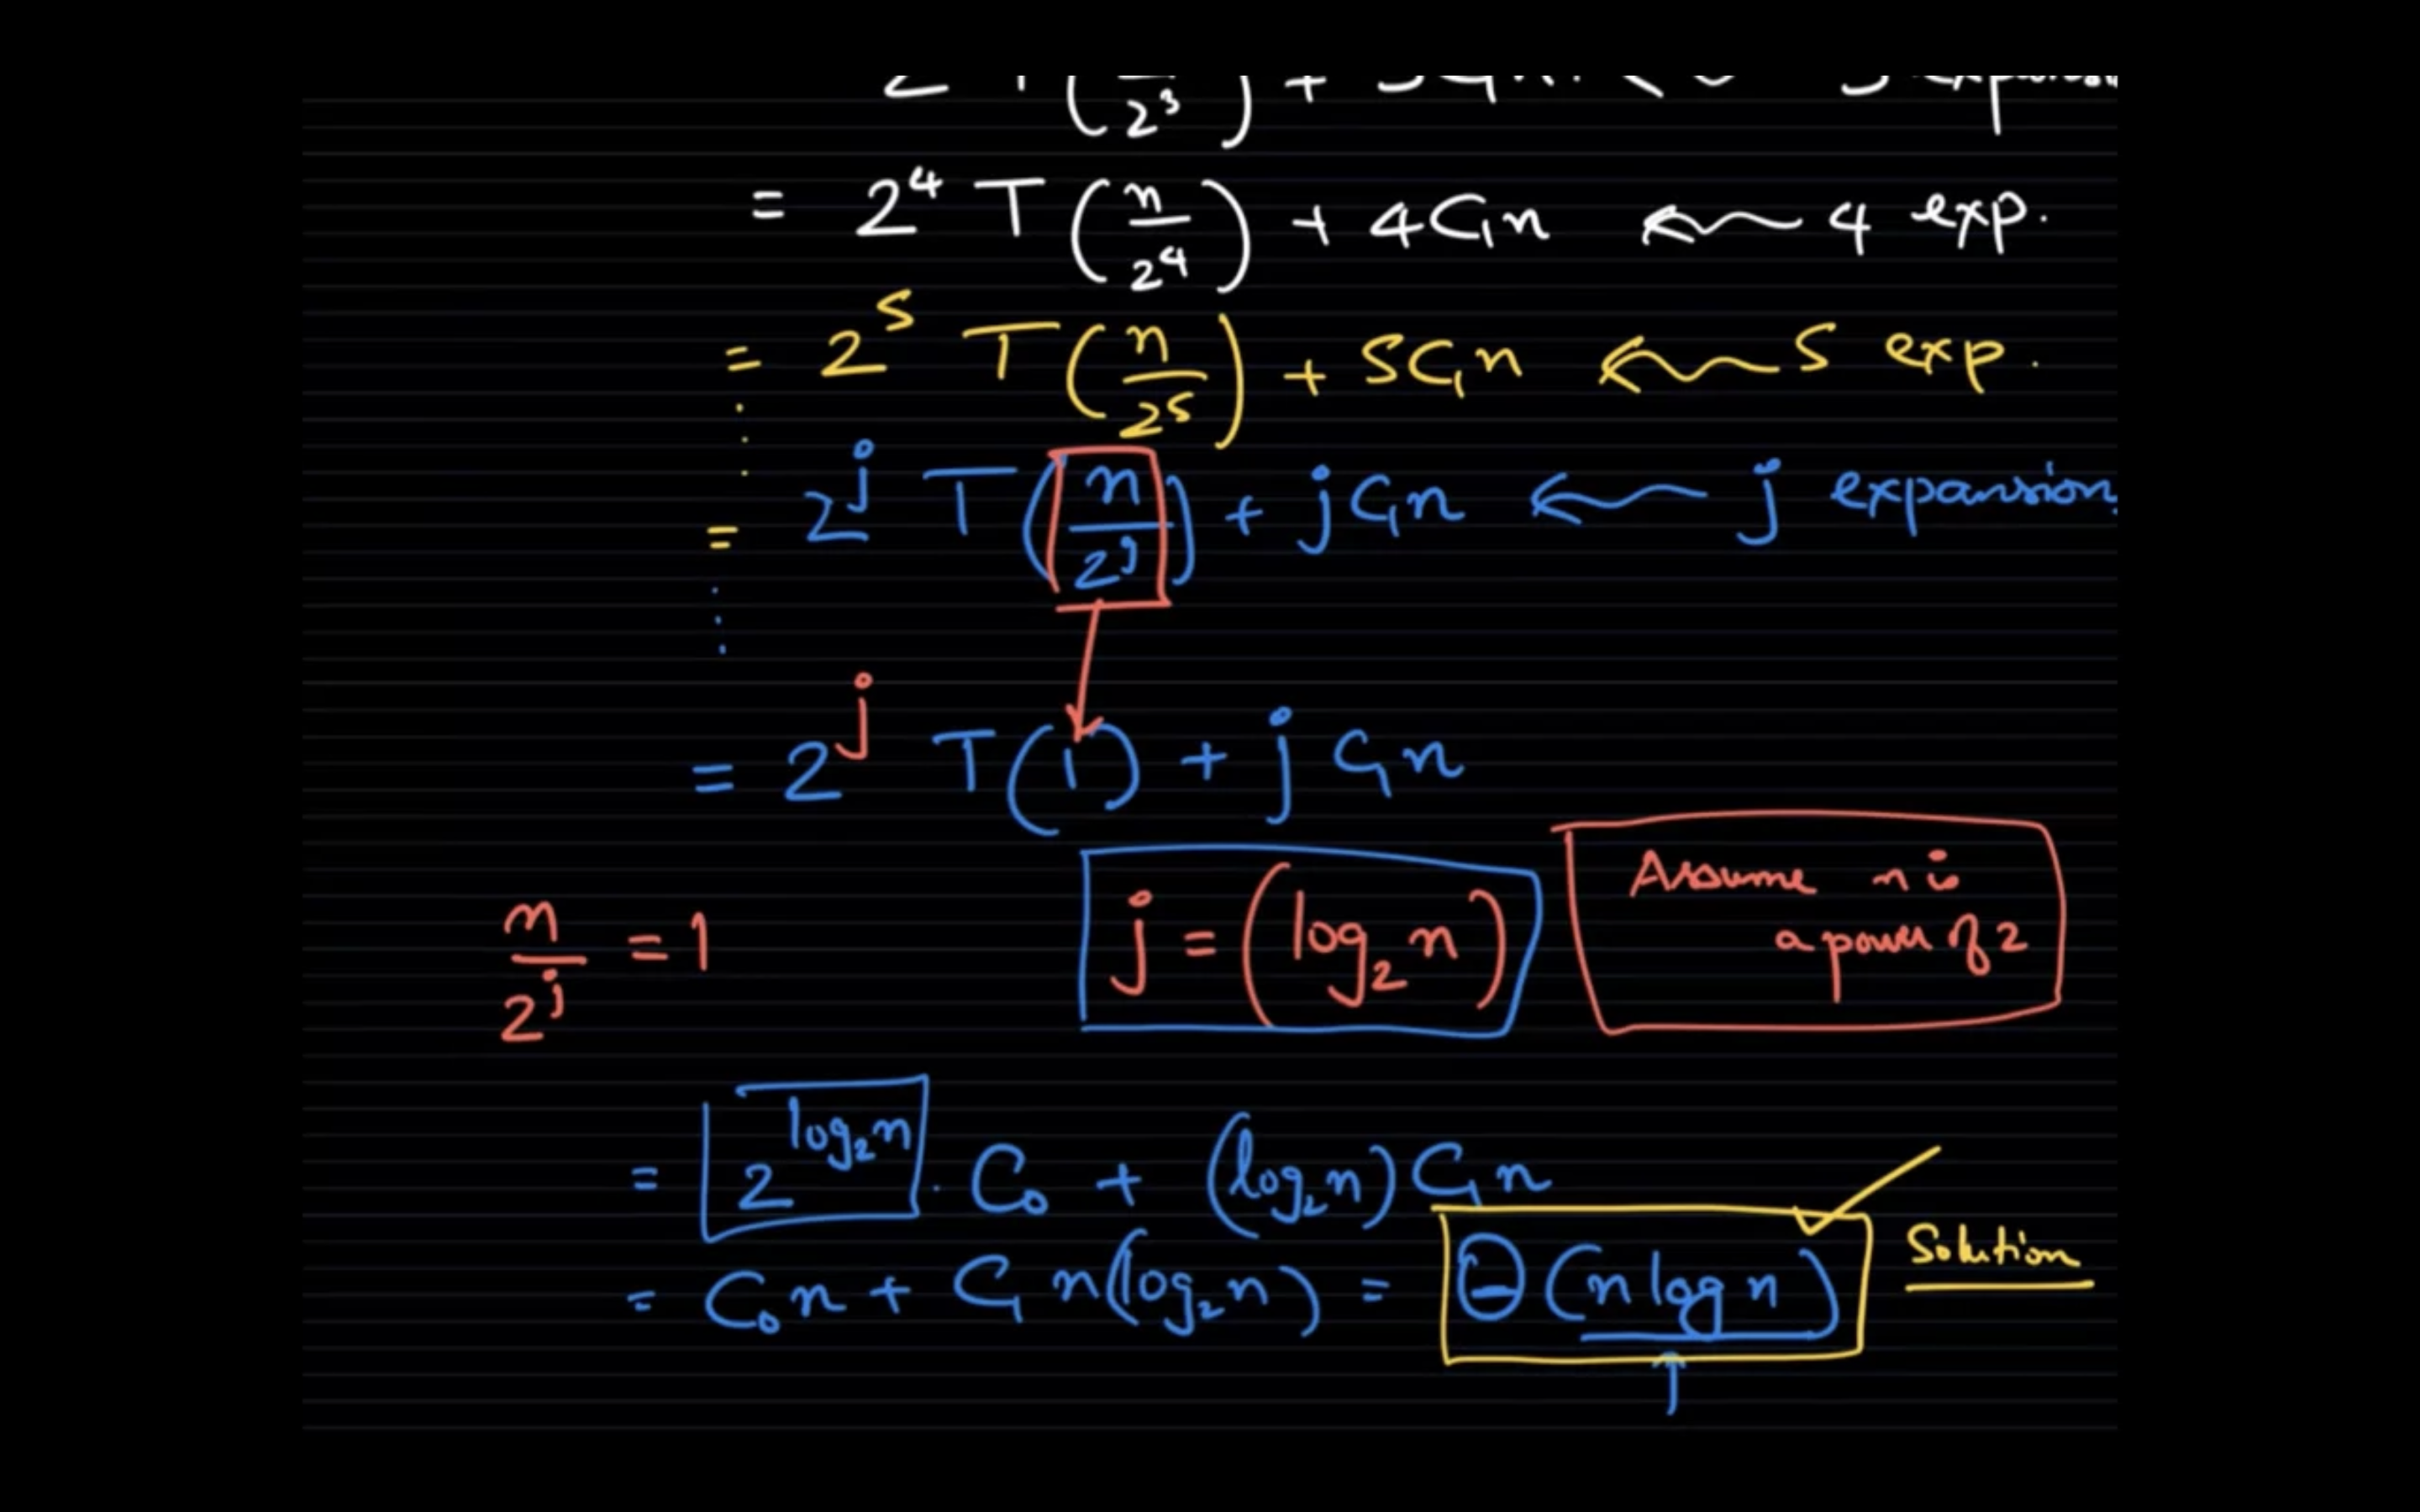 2³
= 2⁴ T(n/2⁴) + 4C₁n ← 4 exp.
= 2⁵ T(n/2⁵) + 5C₁n ← 5 exp.
= 2ʲ T(n/2ʲ) + jC₁n ← j expansion
= 2ʲ T(1) + jC₁n
n/2ʲ = 1
j = (log₂n)
Assume n is
a power of 2
= 2^(log₂n) · C₀ + (log₂n)C₁n
= C₀n + C₁n(log₂n) = Θ(n log n)
Solution